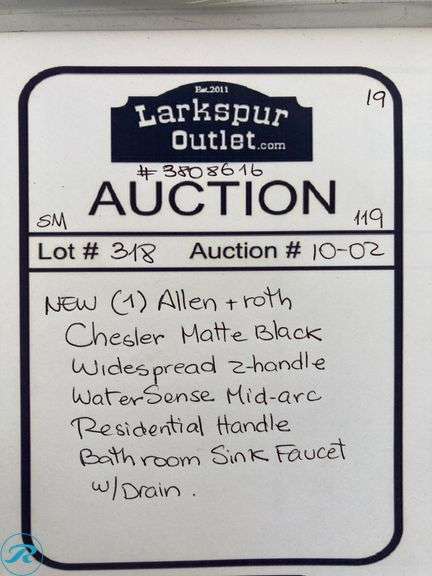 19
Est.2011
Larkspur
Outlet.com
#3808616
AUCTION
SM 119
Lot # 318 Auction # 10-02
NEW (1) Allen + roth
Chesler Matte Black
Widespread 2-handle
WaterSense Mid-arc
Residential Handle
Bathroom Sink Faucet
w/Drain.
R